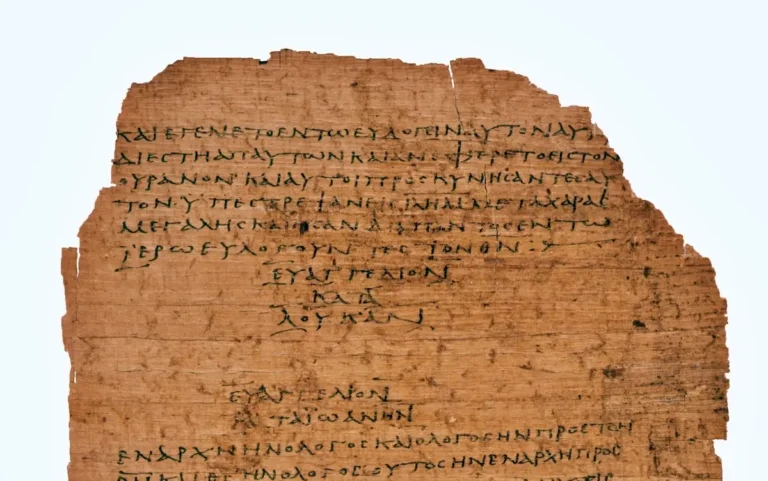 ΚΑΙ ΕΓΕΝΕΤΟ ΕΝ ΤΩ ΕΥΛΟΓΕΙΝ ΑΥΤΟΝ ΑΥ
ΔΙΕCΤΗ ΑΠ ΑΥΤΩΝ ΚΑΙ ΑΝΕΦΕΡΕΤΟ ΕΙC ΤΟΝ
ΟΥΡΑΝΟΝ ΚΑΙ ΑΥΤΟΙ ΠΡΟCΚΥΝΗCΑΝΤΕC ΑΥ
ΤΟΝ ΥΠΕCΤΡΕΨΑΝ ΕΙC ΜΕΤΑ ΧΑΡΑC
ΜΕΓΑΛΗC ΚΑΙ ΗCΑΝ ΔΙΑ ΠΑΝΤΟC ΕΝ ΤΩ
ΙΕΡΩ ΕΥΛΟΓΟΥΝΤΕC ΤΟΝ ΘΝ
ΕΥΑΓΓΕΛΙΟΝ
ΚΑΤΑ
ΛΟΥΚΑΝ
ΕΥΑΓΓΕΛΙΟΝ
ΚΑΤΑ ΙΩΑΝΗΝ
ΕΝ ΑΡΧΗ ΗΝ Ο ΛΟΓΟC ΚΑΙ Ο ΛΟΓΟC ΗΝ ΠΡΟC ΤΟΝ
ΗΝ Ο ΛΟΓΟC ΟΥΤΟC ΗΝ ΕΝ ΑΡΧΗ ΠΡΟC